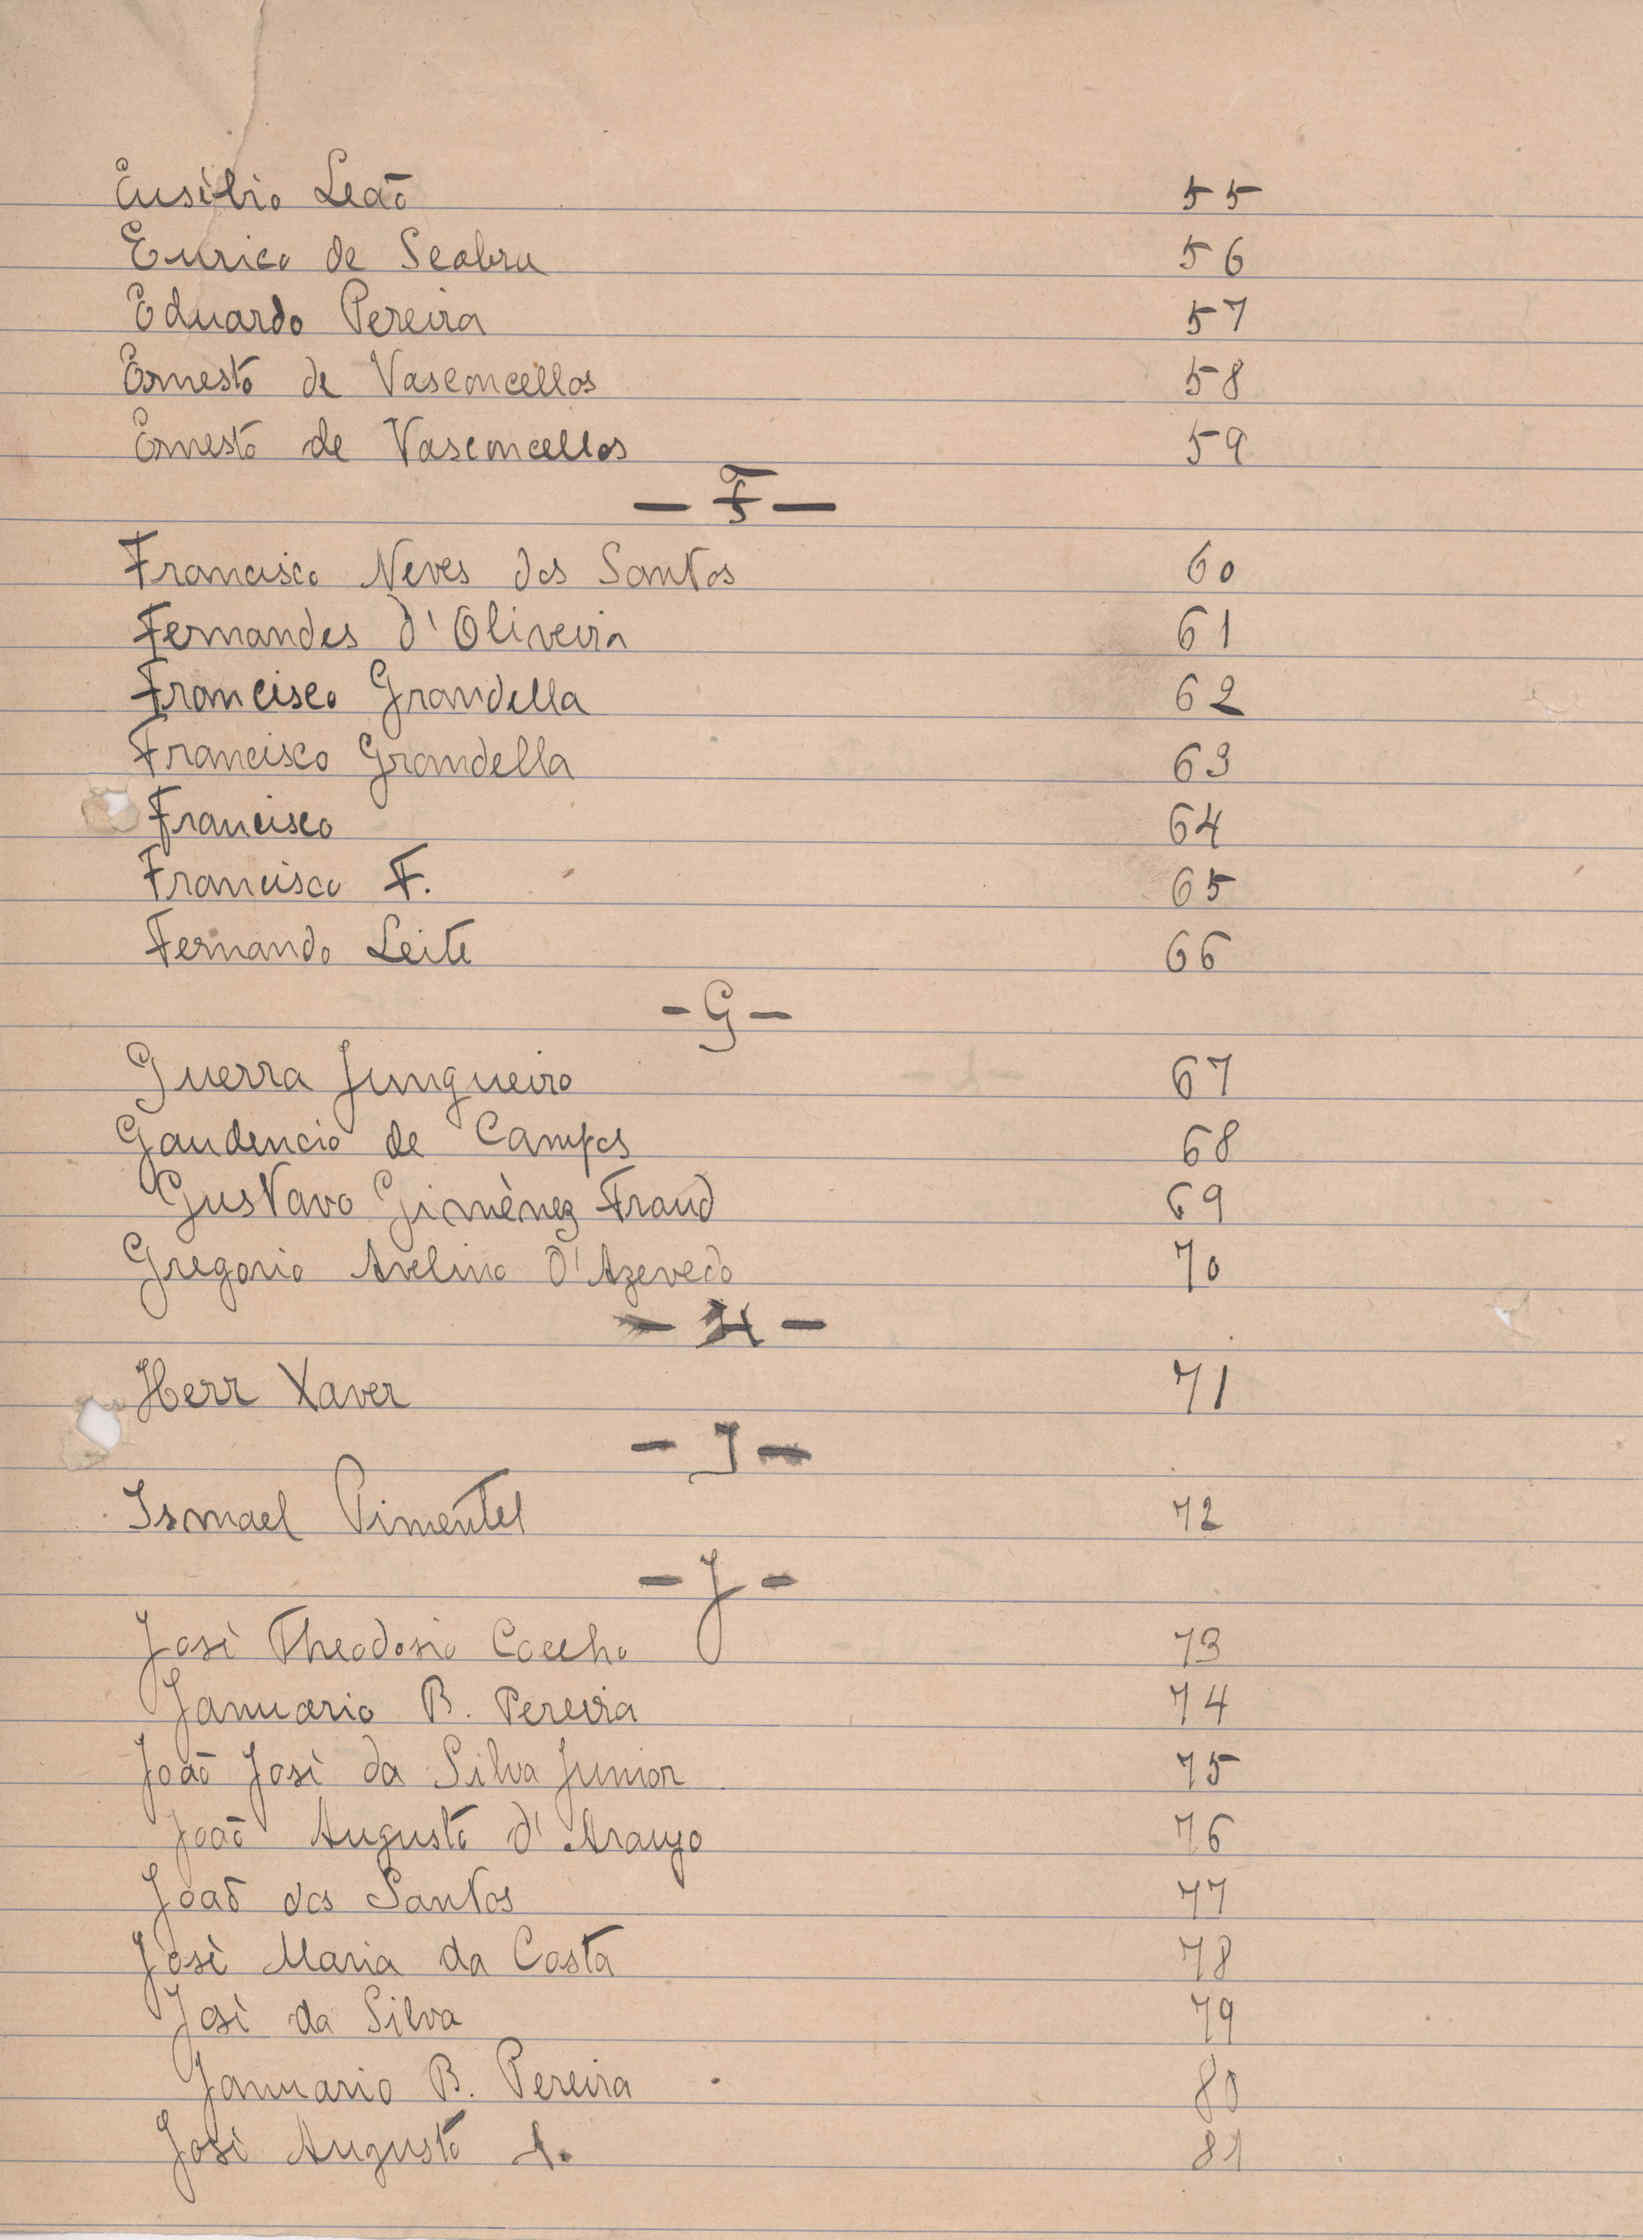 Eusébio Leão 55
Eurico de Seabra 56
Eduardo Pereira 57
Ernesto de Vasconcellos 58
Ernesto de Vasconcellos 59
- F -
Francisco Neves dos Santos 60
Fernandes d'Oliveira 61
Francisco Grandella 62
Francisco Grandella 63
Francisco 64
Francisco F. 65
Fernando Leite 66
- G -
Guerra Junqueiro 67
Gaudencio de Campos 68
Gustavo Giménez Fraud 69
Gregorio Avelino d'Azevedo 70
- H -
Herr Xaver 71
- I -
Ismael Pimentel 72
- J -
José Theodosio Coelho 73
Januario B. Pereira 74
João José da Silva Junior 75
João Augusto d'Araujo 76
João dos Santos 77
José Maria da Costa 78
José da Silva 79
Januario B. Pereira 80
José Augusto A. 81